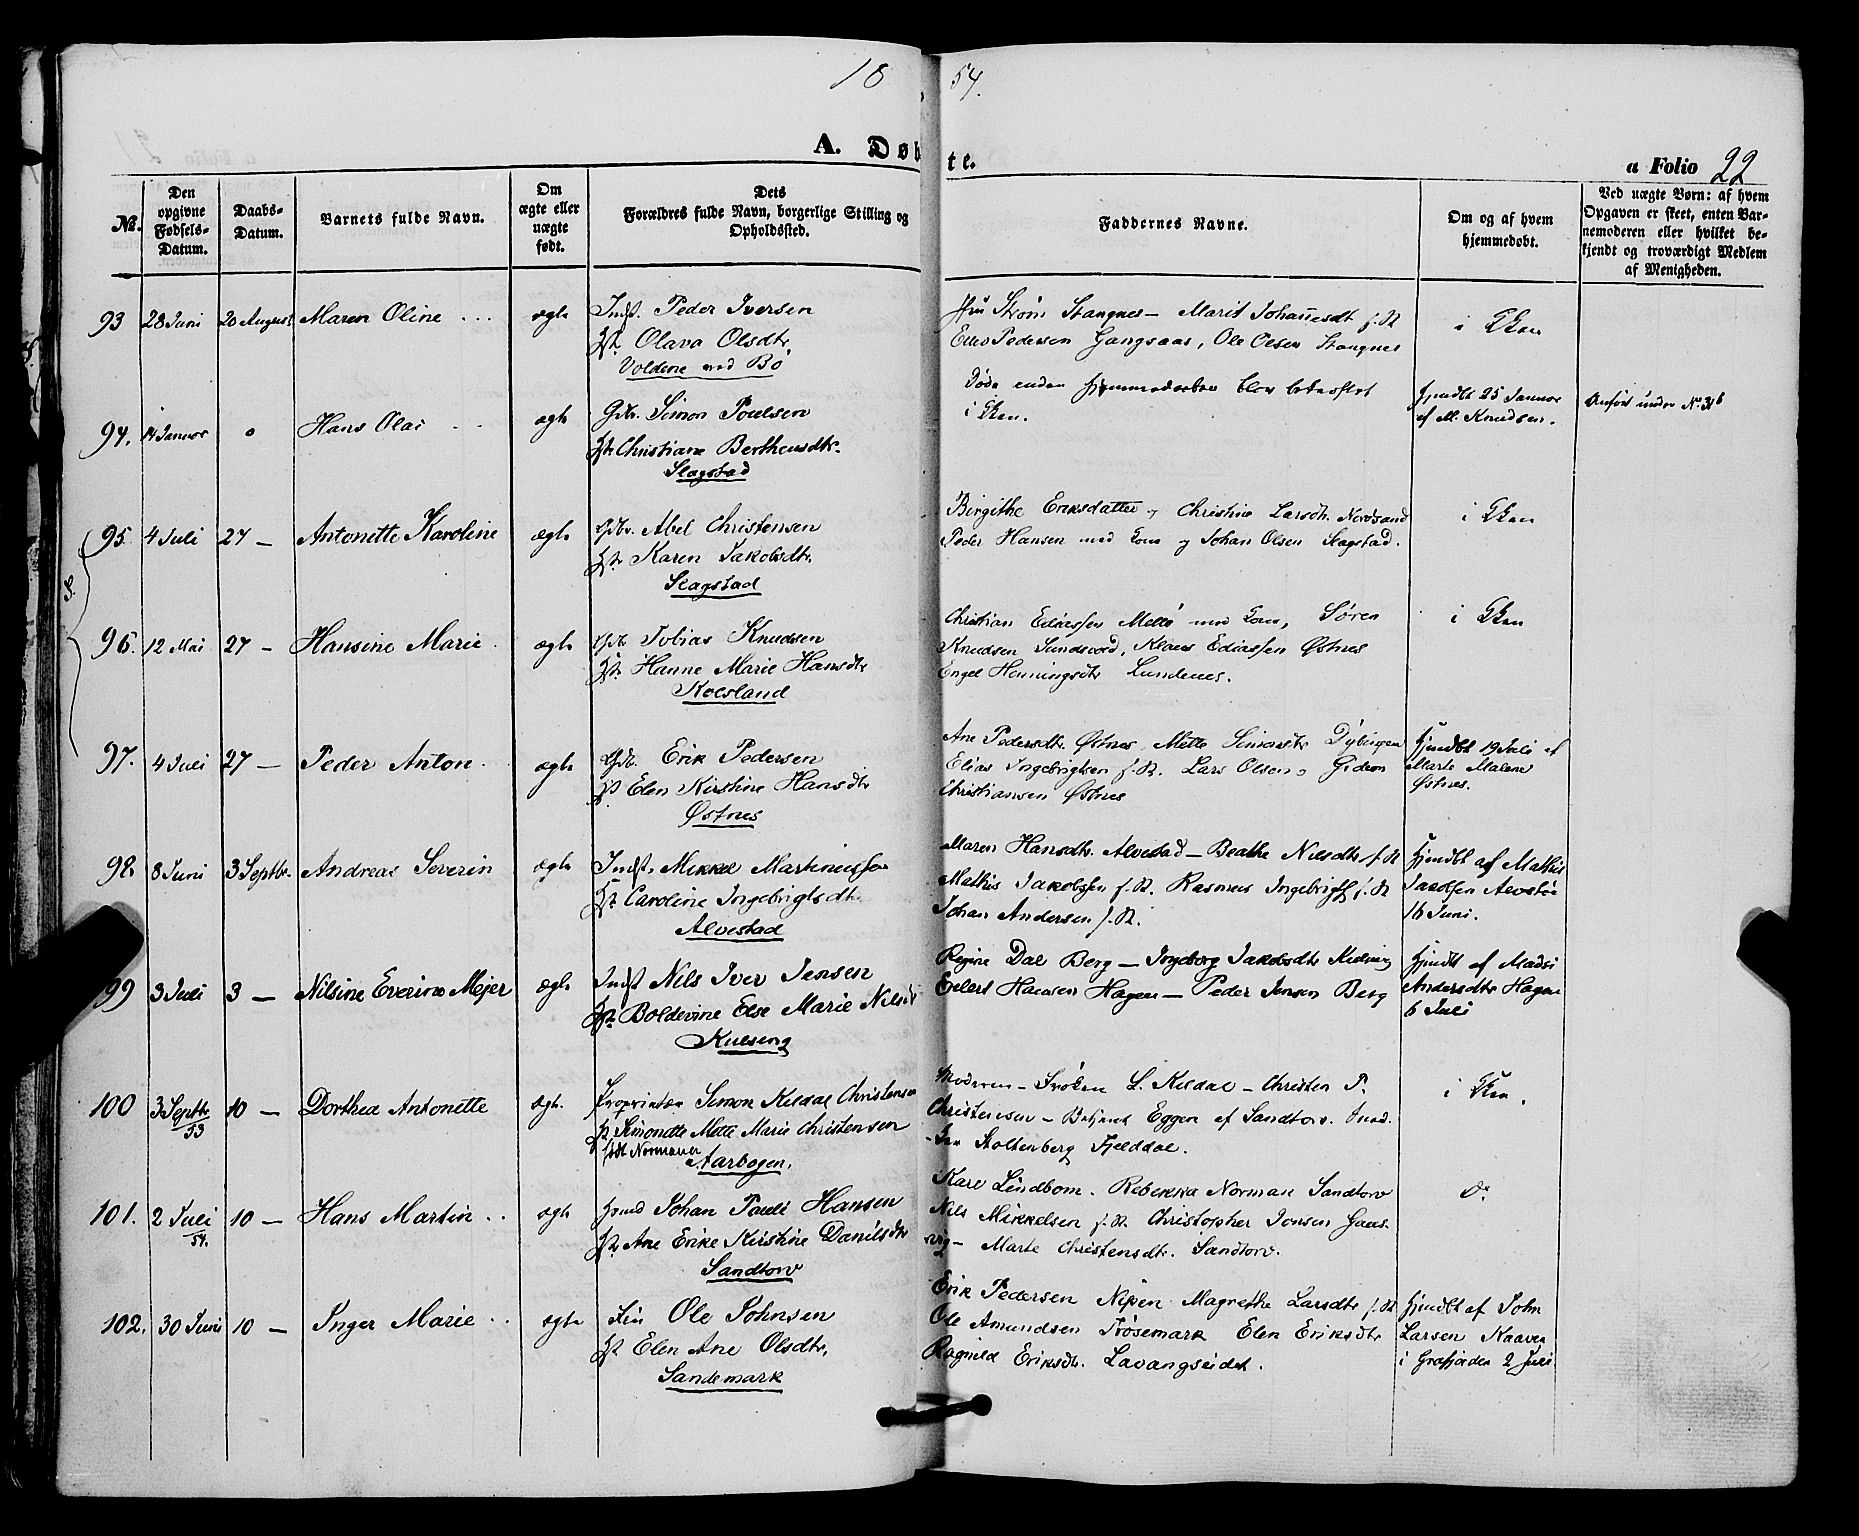 18 54.
A. Døbte.
a Folio 22
No.
Den opgivne Fødsels-Datum.
Daabs-Datum.
Barnets fulde Navn.
Om ægte eller uægte født.
Dets Forældres fulde Navn, borgerlige Stilling og Opholdssted.
Faddernes Navne.
Om og af hvem hjemmedøbt.
Ved uægte Børn: af hvem Opgaven er skeet, enten Barnemoderen eller hvilket bekjendt og troværdigt Medlem af Menigheden.
93 28 Juni 20 August Maren Oline ægte Indst. Peder Iversen
Olava Olsdtr
Voldene ved Bö
Fru Strøm Stangnes - Marit Johannesdt
Pedersen Gangsaas, Ole Olsen Stangnes
i Kken
94. 14 Januar Hans Olai ægte Gdbr. Simon Poulsen
Christiane Bertheusdtr.
Slagstad
Døde enden hjemmedøbt blev
i Kken.
hjmdbt 25 Januar
af M. Knudsen.
Anført under No. 31b
95. 4 Juli 27 - Antonette Karoline ægte Gdbr. Abel Christensen
Karen Jakobsdtr.
Slagstad
Birgithe Eriksdatter og Christine Larsdtr. Nordsand
Peder Hansen med Kone og Johan Olsen Slagstad.
i Kken
96. 12 Mai 27 - Hansine Marie ægte Gdbr Tobias Knudsen
Hanne Marie Hansdtr
Kolsland
Christian Ediassen Melø med Kone, Søren
Knudsen Sundsvold, Klaus Ediassen Østnes
Engel Henningsdtr Lundenes.
i Kken
97. 4 Juli 27 - Peder Anton ægte Gdbr. Erik Pedersen
Elen Kirstine Hansdtr
Østnes
Ane Pedersdtr. Østnes, Mette Simonsdtr Dybingen
Elias Ingebrigtsen f. St. Lars Olsen og Gideon
Christiansen Østnes
hjmdbt 19 Juli af
Marte Malene
Østnes.
98. 8 Juni 3 Septbr. Andreas Severin ægte Indst. Mikkel Martinussen
Caroline Ingebrigtsdtr.
Alvestad
Maren Hansdtr. Alvestad - Beathe Nilsdtr f. St
Mathis Jakobsen f. St. Rasmus Ingebrigts f. St
Johan Andersen f. St.
hjmdbt af Mathis
Jacobsen
16 Juni.
99 3 Juli 3 - Nilsine Everine Mejer ægte Indst Nils Iver Jensen
Boldevine Else Marie Nilsdt
Kulseng
Regine Dal Berg - Ingeborg Jakobsdtr
Eilert Hansen Hagen - Peder Jensen Berg
hjmdbt af
Andersdtr Hagen
6 Juli
100 3 Septbr/53 10 - Dorthea Antonette ægte. Proprietær Simon Kildal Christensen
Simondtte Mette Marie Christensen
født Normann
Aarbogen.
Moderen - Frøken L. Kildal - Christen P.
Christensen - Eggen af Sandtorv.
Stoltenberg Fjelddal.
i Kken.
101. 2 Juli 54. 10 - Hans Martin ægte Johan Pauli Hansen
Ane Erike Kirstine Danilsdtr
Sandtorv
Kare Lindbom. Rebekka Norman Sandtorv
Nils Mikkelsen f. St Christopher Jonsen Gaas-
vig - Marte Christensdtr. Sandtorv.
do
102. 30 Juni 10 - Inger Marie ægte Fin Ole Johnsen
Elen Ane Olsdtr.
Sandemark
Erik Pedersen Nipen Magrethe Larsdtr f. St
Ole Amundsen Trøsemark Elen Eriksdtr
Ragnild Eriksdtr. Lavangseidet.
hjmdbt af John
Larsen Naaven
i Grafjorden 2 Juli